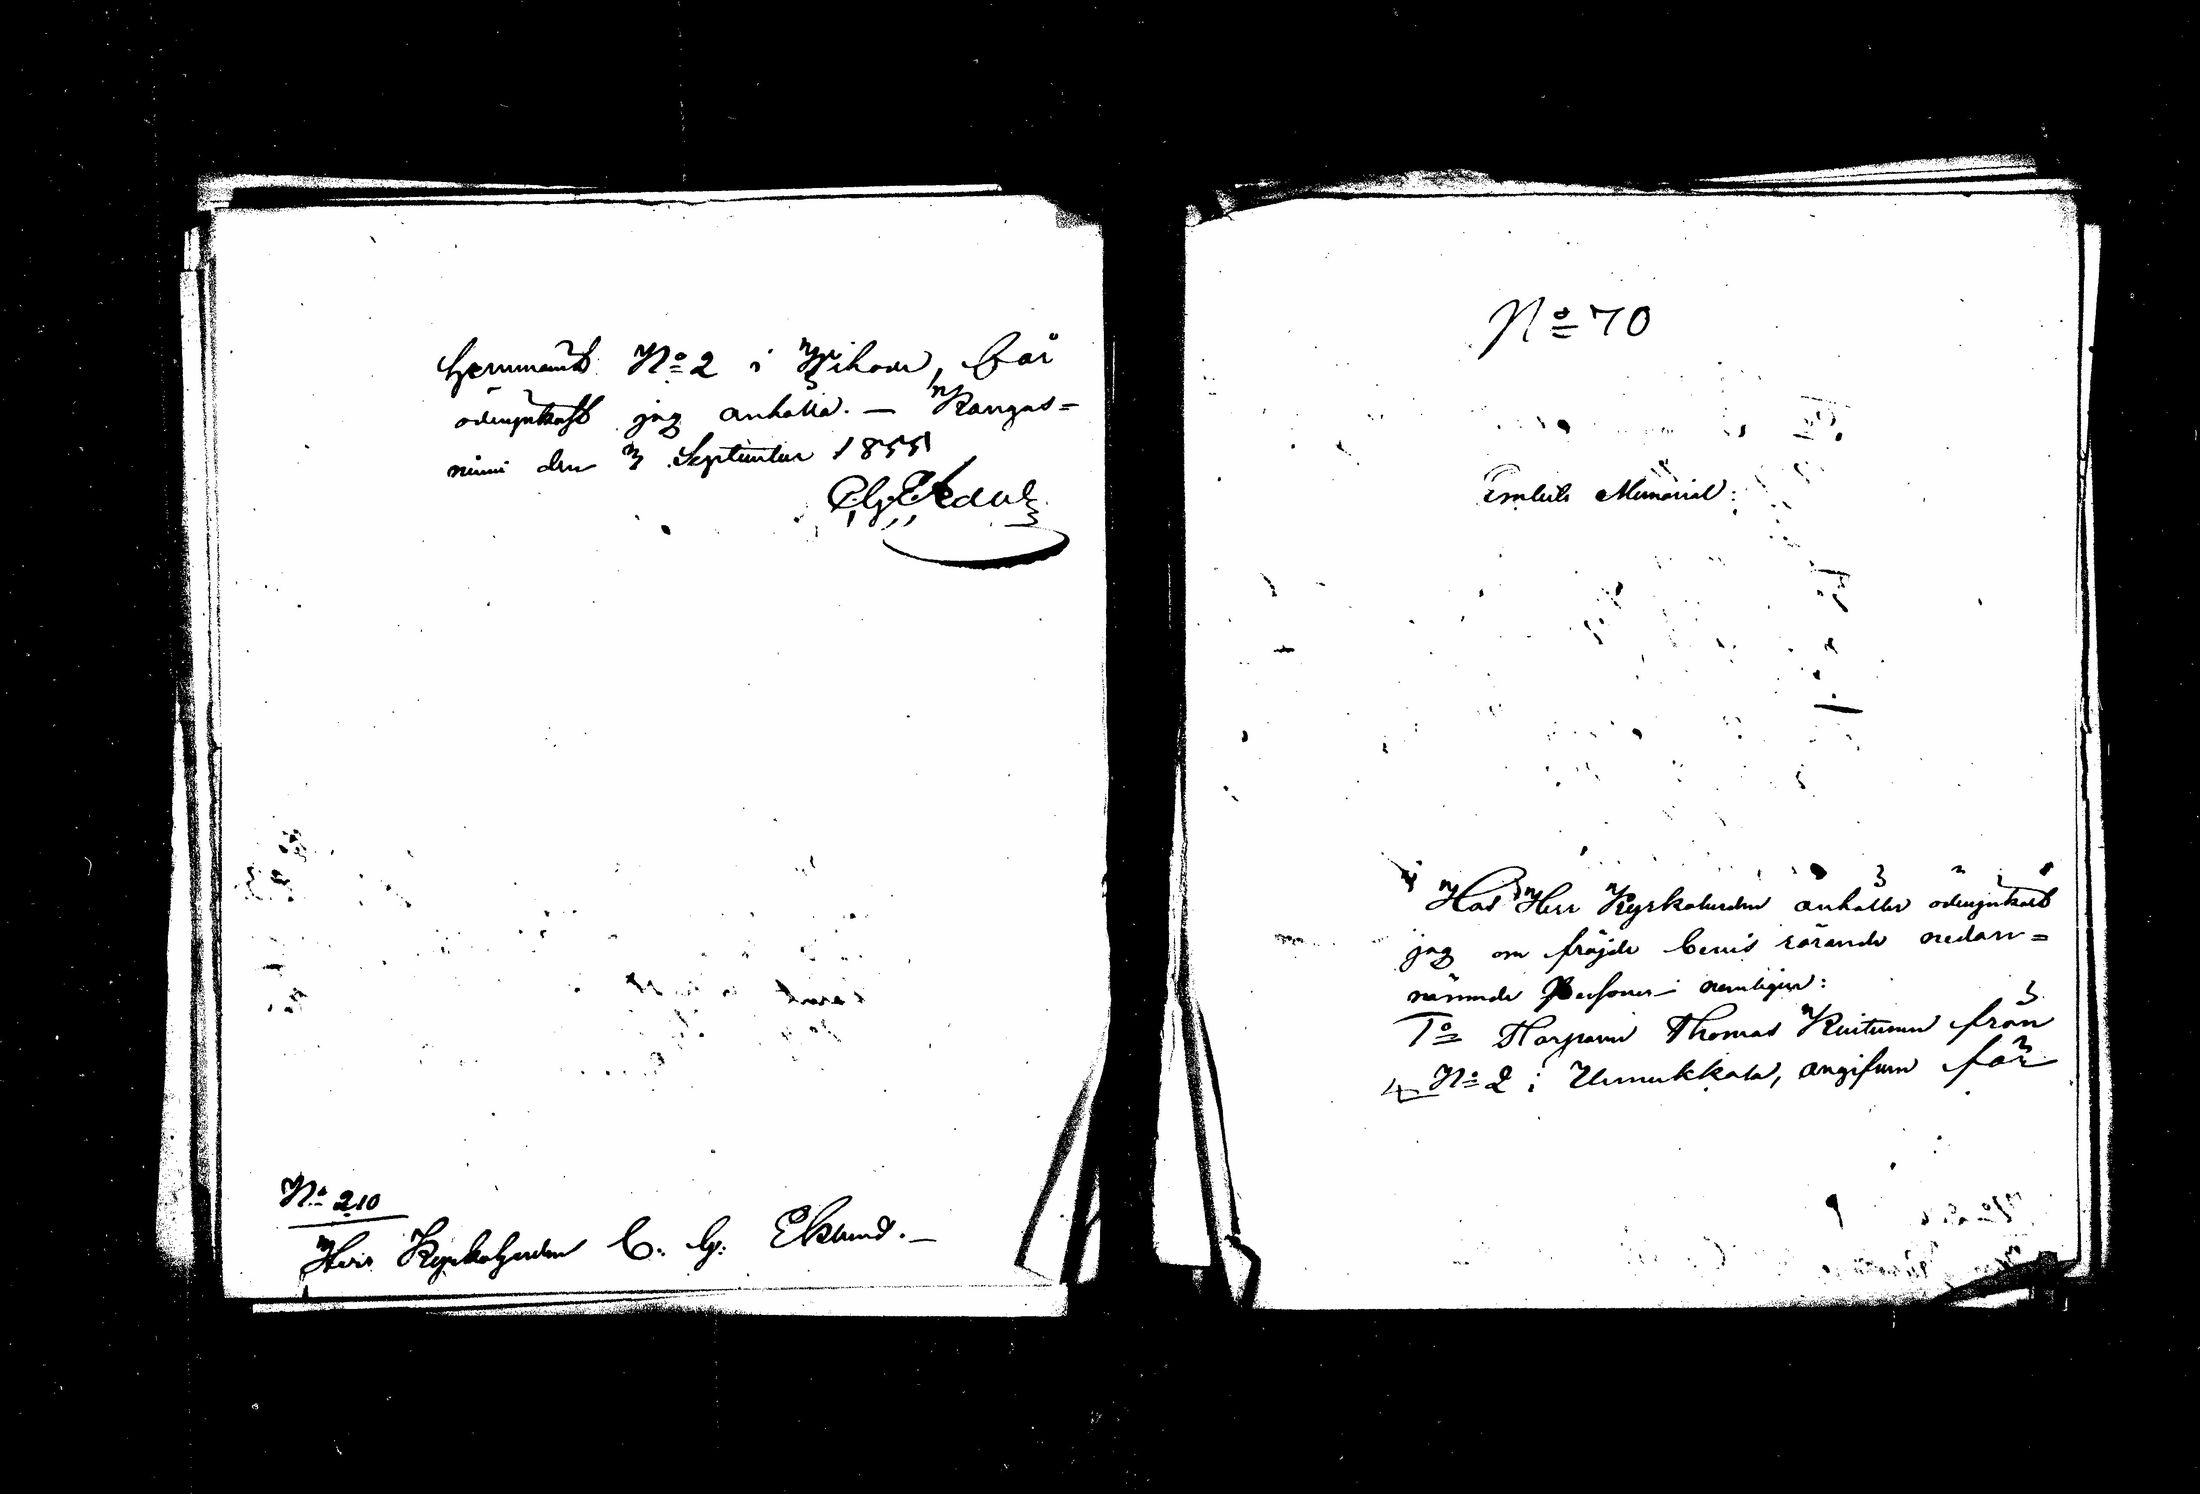 hemmant No 2 i Wihava, får
ödmjukast jag anhålla. — Kangas=
niemi den 3 September 1855
No 210
Herr Kyrkoherden C. G. Eklund. —
No 70
Embets Memorial:
Hos Herr Kyrkoherden anhåller ödmjukast
jag om fräjde bevis rörande nedan=
nämnde Personer nemligen:
1o Torparen Thomas Kuitunen från
No 2 i Unnukkala, angifven för